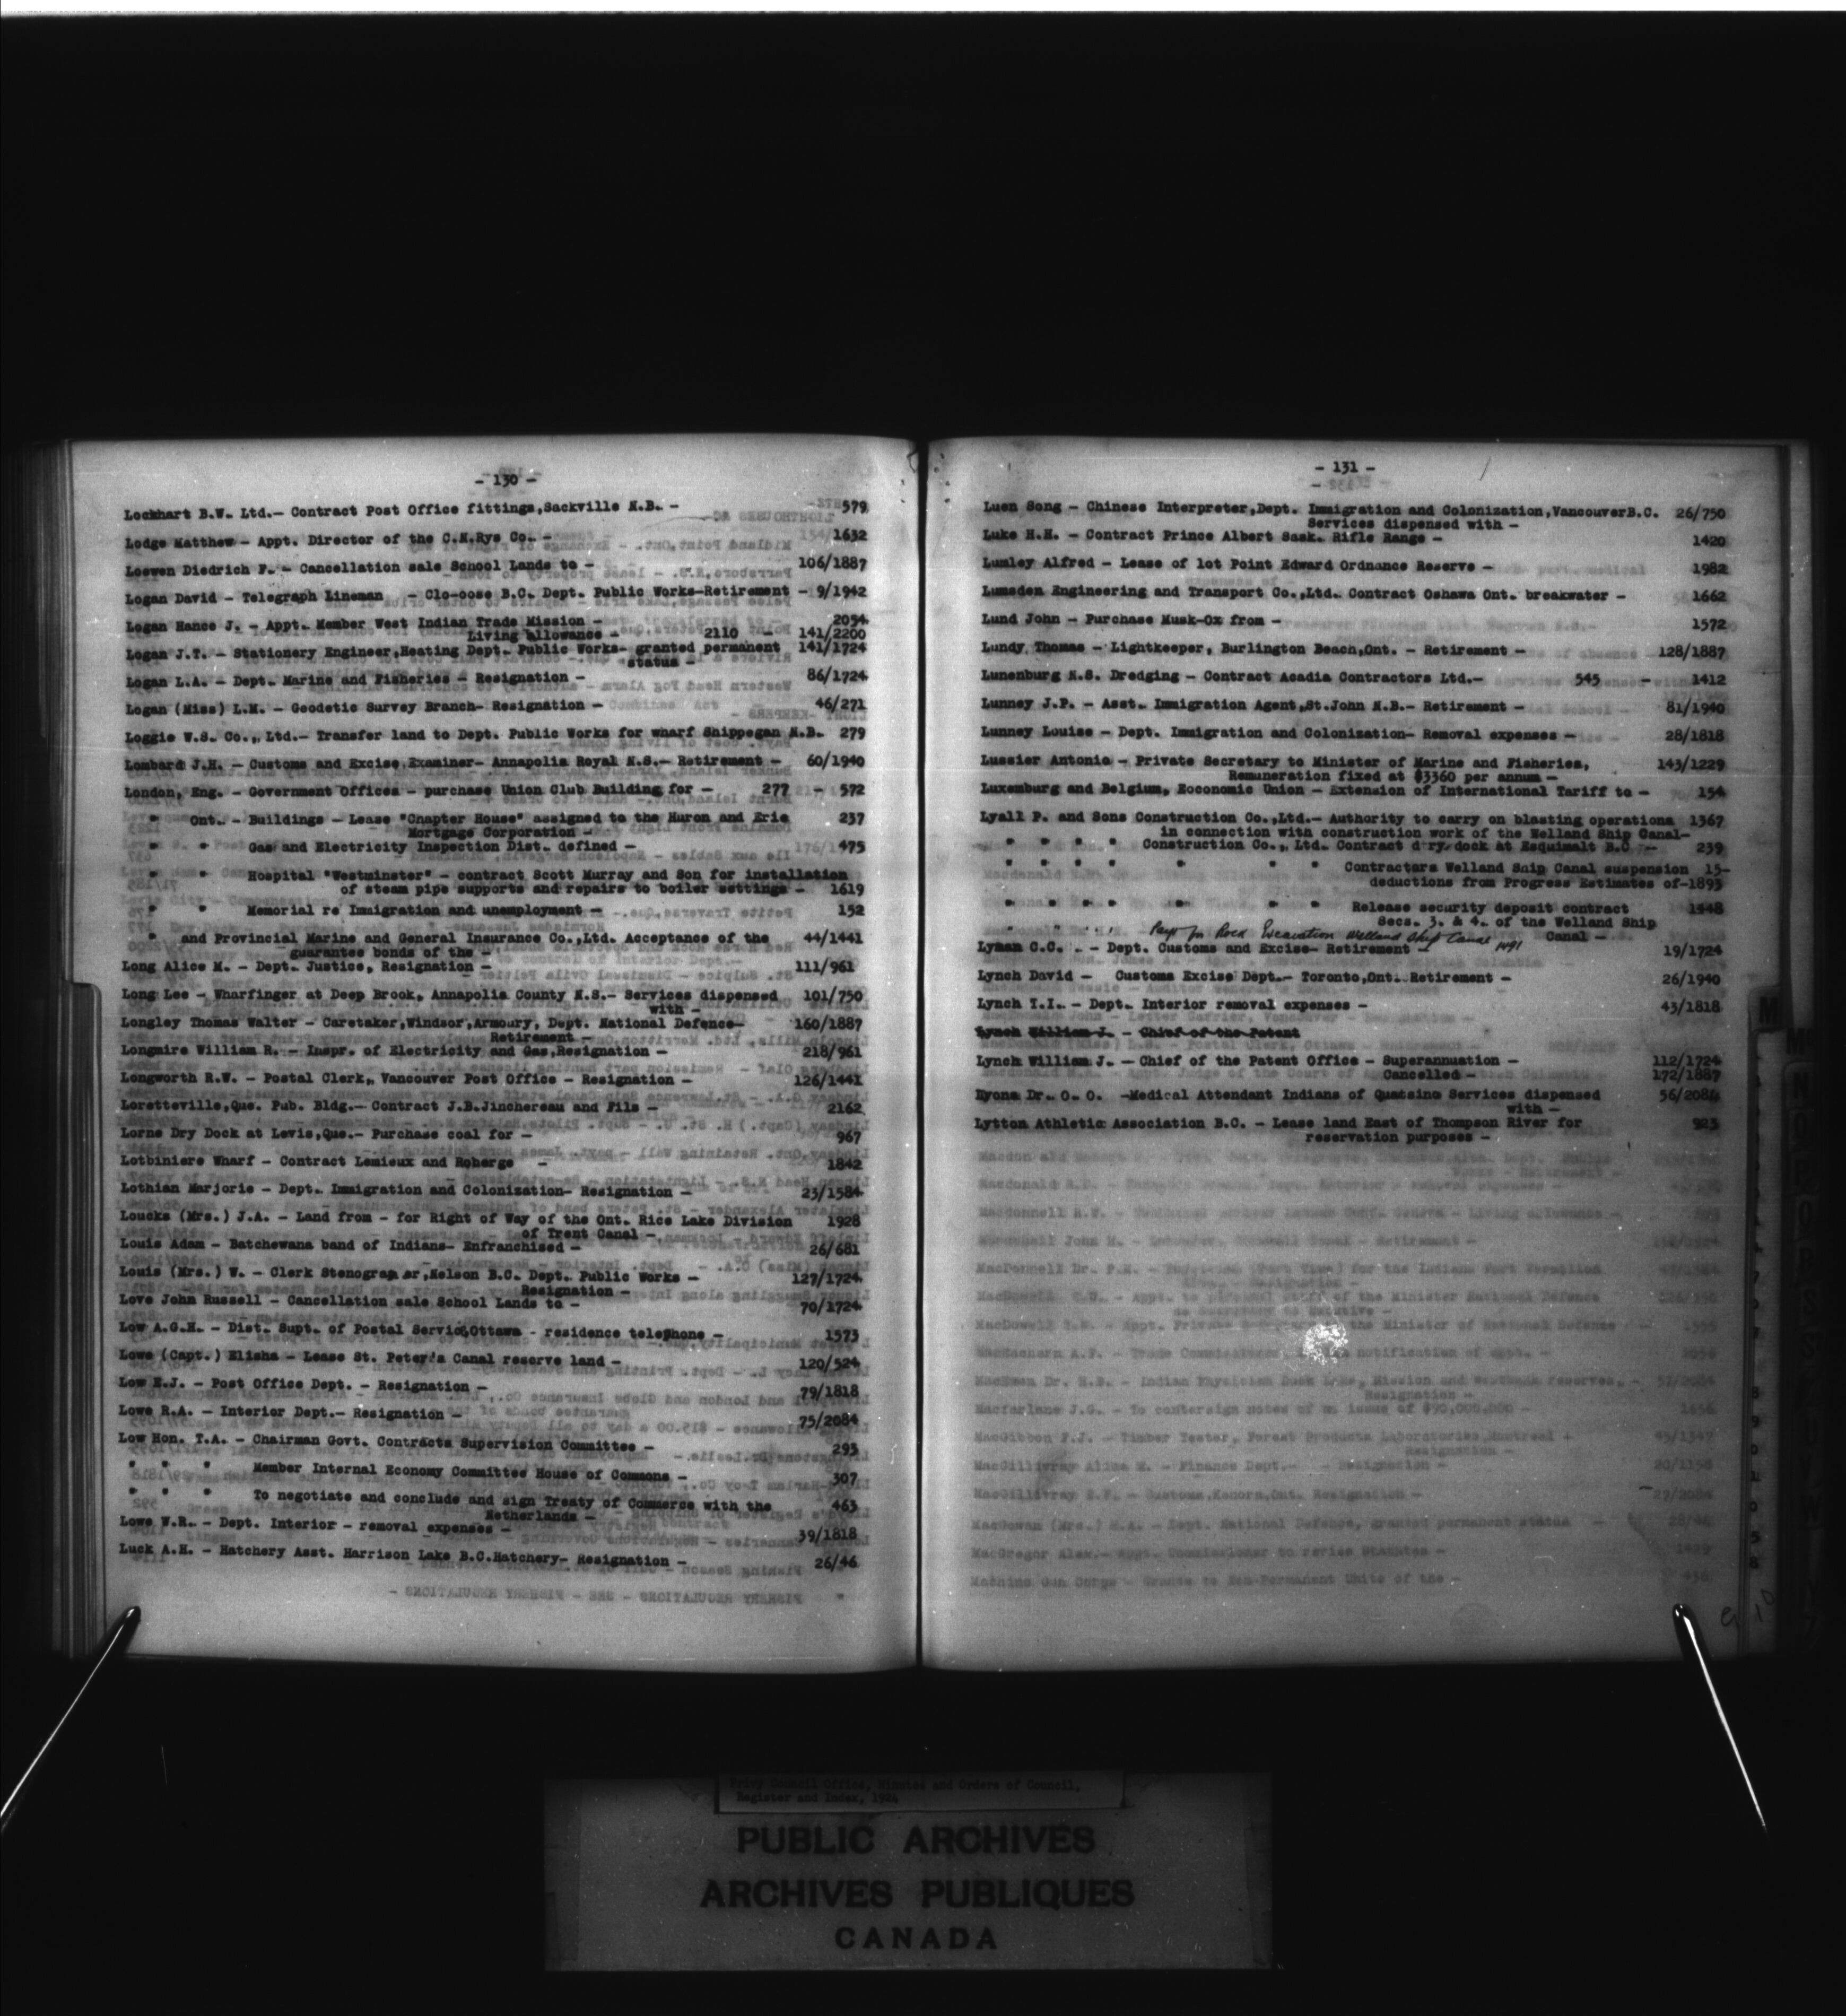 - 130 -
Lockhart B.W. Ltd.- Contract Post Office fittings,Sackville N.B. - 579
Lodge Matthew - Appt. Director of the C.N.Rys Co. - 1632
Loewen Diedrich F. - Cancellation sale School Lands to - 106/1887
Logan David - Telegraph Lineman - Clo-oose B.C. Dept. Public Works-Retirement - 9/1942
Logan Hance J. - Appt. Member West Indian Trade Mission - 2054
Living allowance - 2110 - 141/2200
Logan J.T. - Stationery Engineer,Heating Dept. Public Works- granted permanent 141/1724
status -
Logan L.A. - Dept. Marine and Fisheries - Resignation - 86/1724
Logan (Miss) L.M. - Geodetic Survey Branch- Resignation - 46/271
Loggie W.S. Co., Ltd.- Transfer land to Dept. Public Works for wharf Shippegan N.B. 279
Lombard J.H. - Customs and Excise Examiner- Annapolis Royal N.S.- Retirement - 60/1940
London, Eng. - Government Offices - purchase Union Club Building for - 277 - 572
" Ont. - Buildings - Lease "Chapter House" assigned to the Huron and Erie 237
Mortgage Corporation -
" " Gas and Electricity Inspection Dist. defined - 475
" " Hospital "Westminster" - contract Scott Murray and Son for installation
of steam pipe supports and repairs to boiler settings - 1619
" " Memorial re Immigration and unemployment - 152
" and Provincial Marine and General Insurance Co.,Ltd. Acceptance of the 44/1441
guarantee bonds of the -
Long Alice M. - Dept. Justice, Resignation - 111/961
Long Lee - Wharfinger at Deep Brook, Annapolis County N.S.- Services dispensed 101/750
with -
Longley Thomas Walter - Caretaker,Windsor,Armoury, Dept. National Defence- 160/1887
Retirement -
Longmire William R. - Inspr. of Electricity and Gas,Resignation - 218/961
Longworth R.W. - Postal Clerk, Vancouver Post Office - Resignation - 126/1441
Loretteville,Que. Pub. Bldg.- Contract J.B.Jinchereau and Fils - 2162
Lorne Dry Dock at Levis,Que.- Purchase coal for - 967
Lotbiniere Wharf - Contract Lemieux and Roberge - 1842
Lothian Marjorie - Dept. Immigration and Colonization- Resignation - 23/1584
Loucks (Mrs.) J.A. - Land from - for Right of Way of the Ont. Rice Lake Division 1928
of Trent Canal -
Louis Adam - Batchewana band of Indians- Enfranchised - 26/681
Louis (Mrs.) W. - Clerk Stenographer,Nelson B.C. Dept. Public Works - 127/1724
Resignation -
Love John Russell - Cancellation sale School Lands to - 70/1724
Low A.G.H. - Dist. Supt. of Postal Service,Ottawa - residence telephone - 1573
Lowe (Capt.) Elisha - Lease St. Peter's Canal reserve land - 120/524
Low E.J. - Post Office Dept. - Resignation - 79/1818
Lowe R.A. - Interior Dept.- Resignation - 75/2084
Low Hon. T.A. - Chairman Govt. Contracts Supervision Committee - 293
" " " Member Internal Economy Committee House of Commons - 307
" " " To negotiate and conclude and sign Treaty of Commerce with the 463
Netherlands -
Lowe W.R. - Dept. Interior - removal expenses - 39/1818
Luck A.H. - Hatchery Asst. Harrison Lake B.C.Hatchery- Resignation - 26/46
- 131 -
Luen Song - Chinese Interpreter,Dept. Immigration and Colonization,VancouverB.C. 26/750
Services dispensed with -
Luke H.H. - Contract Prince Albert Sask. Rifle Range - 1420
Lumley Alfred - Lease of lot Point Edward Ordnance Reserve - 1982
Lumsden Engineering and Transport Co.,Ltd. Contract Oshawa Ont. breakwater - 1662
Lund John - Purchase Musk-Ox from - 1572
Lundy Thomas - Lightkeeper, Burlington Beach,Ont. - Retirement - 128/1887
Lunenburg N.S. Dredging - Contract Acadia Contractors Ltd.- 545 - 1412
Lunney J.P. - Asst. Immigration Agent,St.John N.B.- Retirement - 81/1940
Lunney Louise - Dept. Immigration and Colonization- Removal expenses - 28/1818
Lussier Antonio - Private Secretary to Minister of Marine and Fisheries, 143/1229
Remuneration fixed at $3360 per annum -
Luxemburg and Belgium, Eoconomic Union - Extension of International Tariff to - 154
Lyall P. and Sons Construction Co.,Ltd.- Authority to carry on blasting operations 1367
in connection with construction work of the Welland Ship Canal-
" " " " Construction Co., Ltd. Contract dry dock at Esquimalt B.C - 239
" " " " " " " Contractors Welland Ship Canal suspension 15-
deductions from Progress Estimates of-1895
" " " " " " " Release security deposit contract 1448
Secs. 3. & 4. of the Welland Ship
Canal -
" " " " Payt for Rock Excavation Welland Ship Canal 1491
Lyman C.C. - Dept. Customs and Excise- Retirement - 19/1724
Lynch David - Customs Excise Dept.- Toronto,Ont. Retirement - 26/1940
Lynch T.I. - Dept. Interior removal expenses - 43/1818
Lynch William J. - Chief of the Patent
Lynch William J. - Chief of the Patent Office - Superannuation - 112/1724
Cancelled - 172/1887
Lyons Dr. O. O. -Medical Attendant Indians of Quatsino Services dispensed 56/2084
with -
Lytton Athletic Association B.C. - Lease land East of Thompson River for 923
reservation purposes -
Privy Council Office, Minutes and Orders of Council,
Register and Index, 1924
PUBLIC ARCHIVES
ARCHIVES PUBLIQUES
CANADA